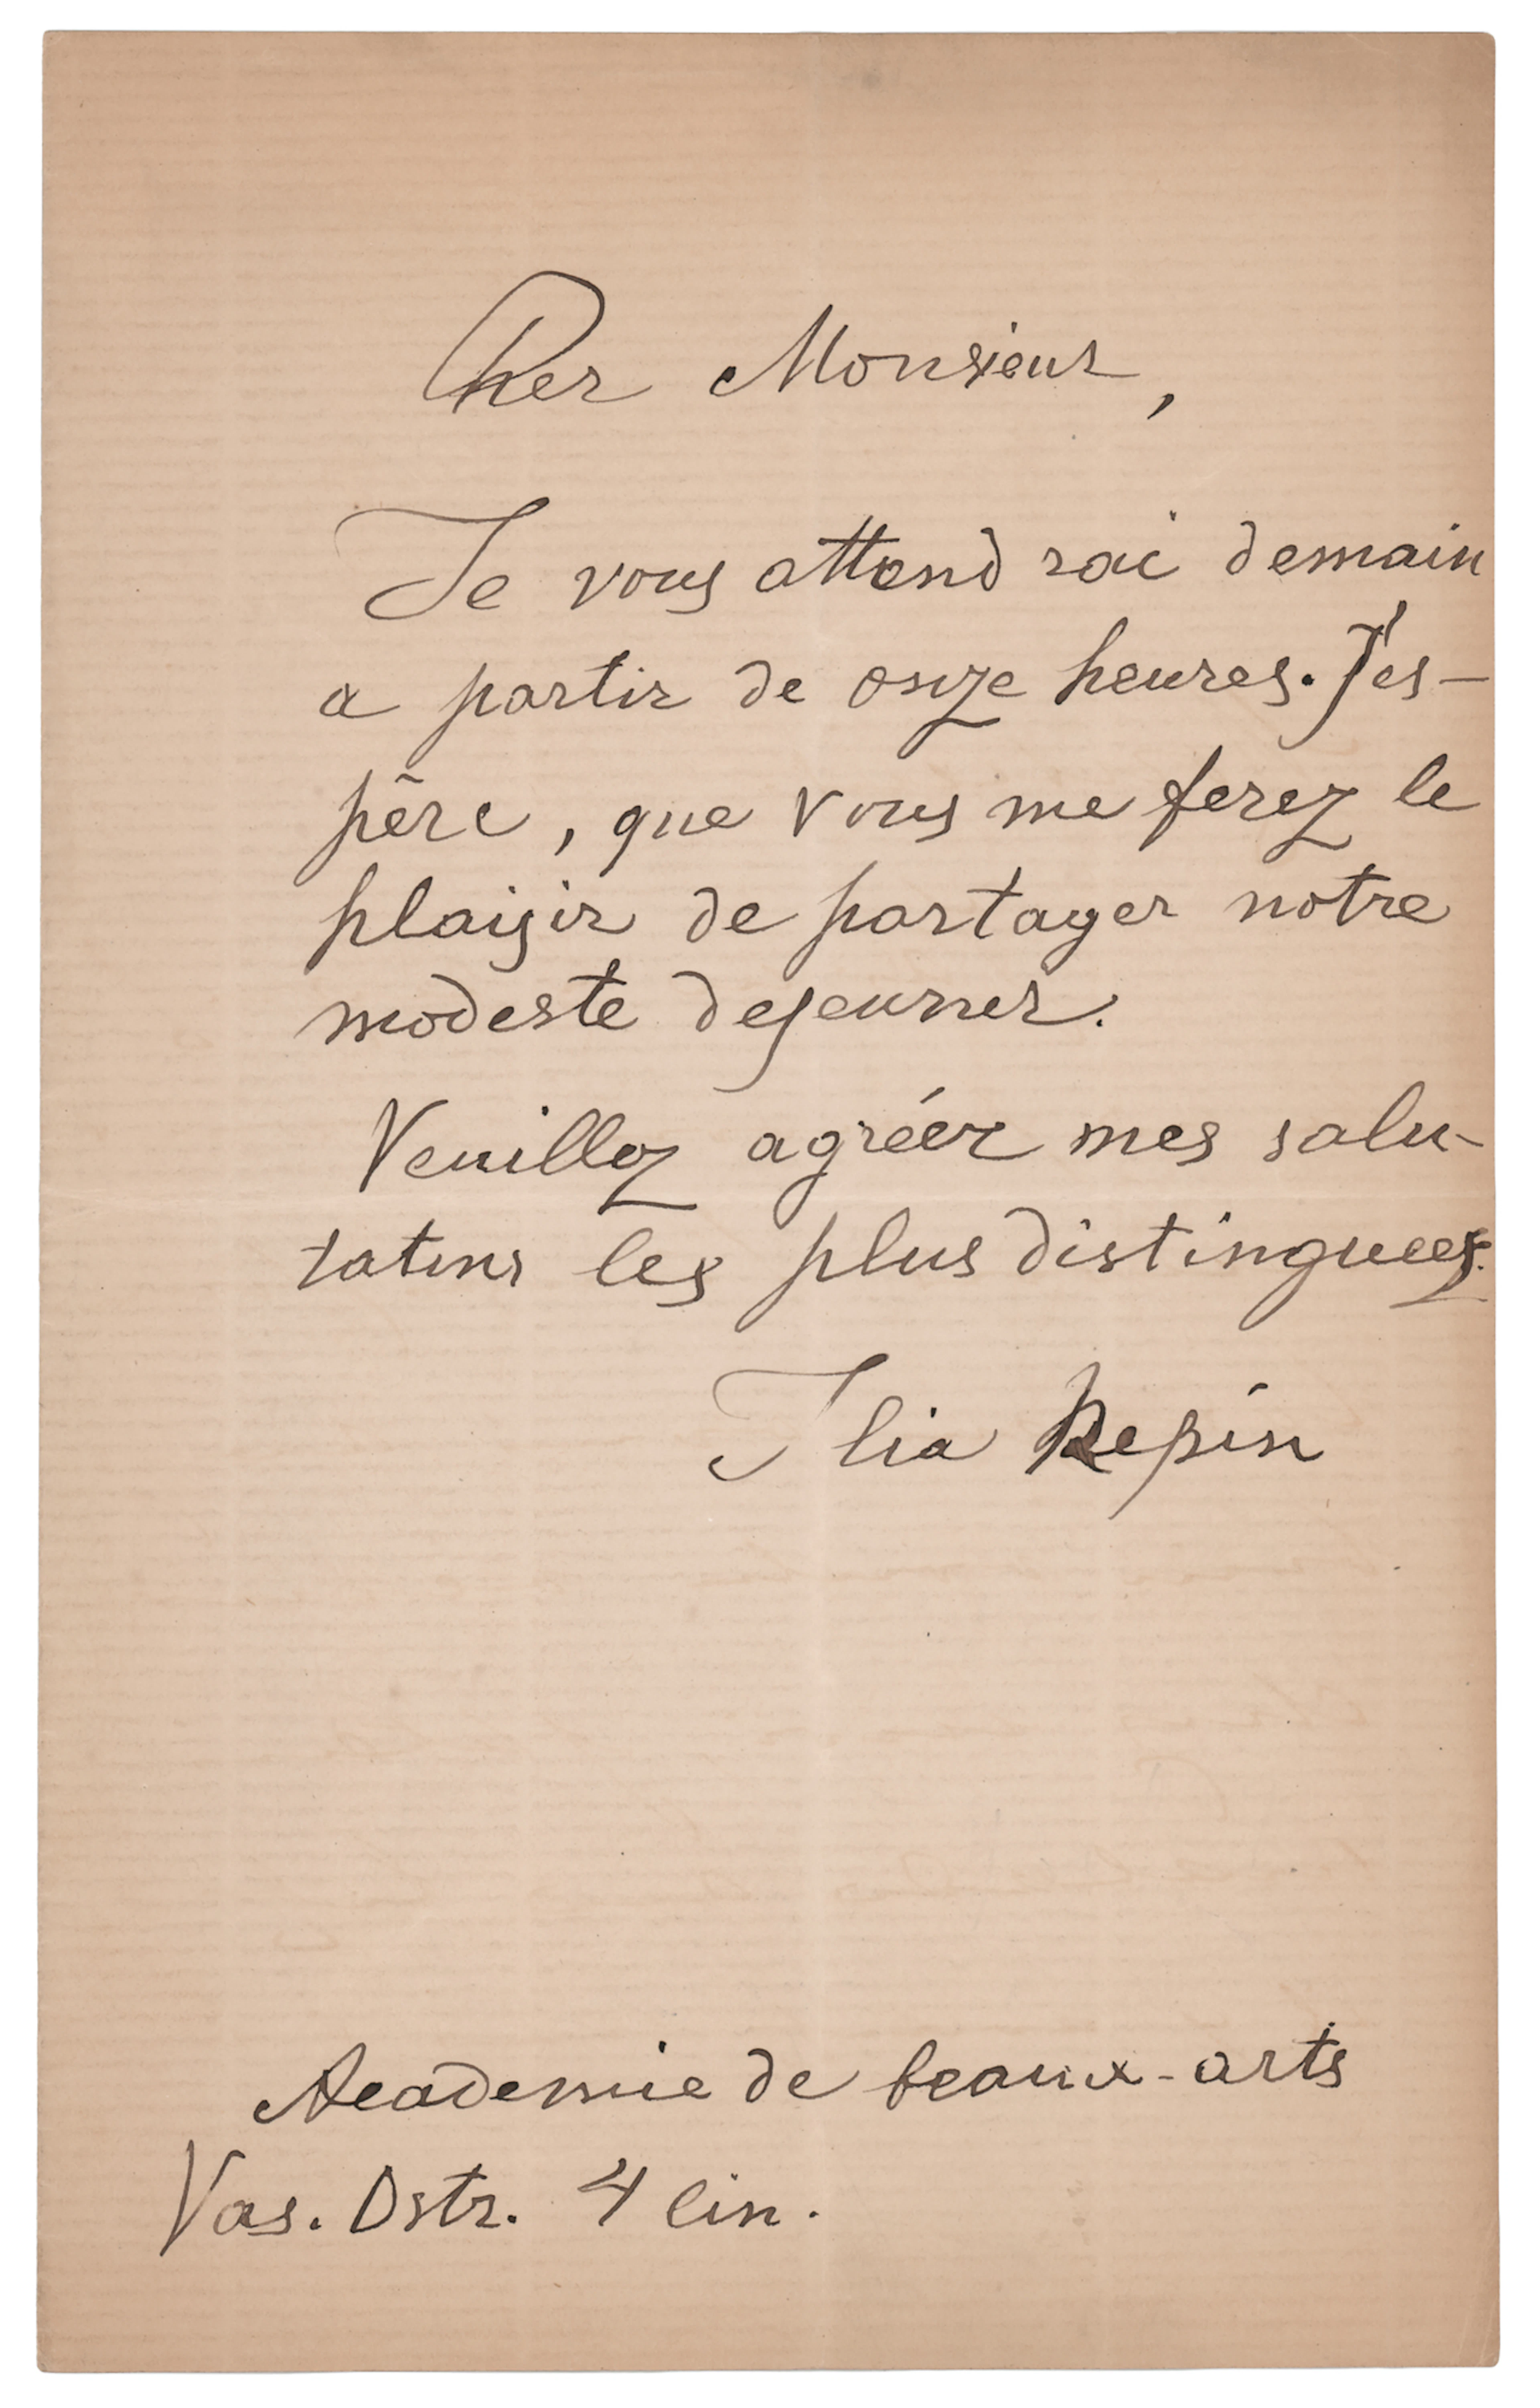 Cher Monsieur,
Je vous attendrai demain
a partir de onze heures. J'es-
père, que vous me ferez le
plaisir de partager notre
modeste dejeuner.
Veuillez agréer mes salu-
tations les plus distinguees.
Ilia Repin
Academie de beaux-arts
Vas. Ostr. 4 lin.